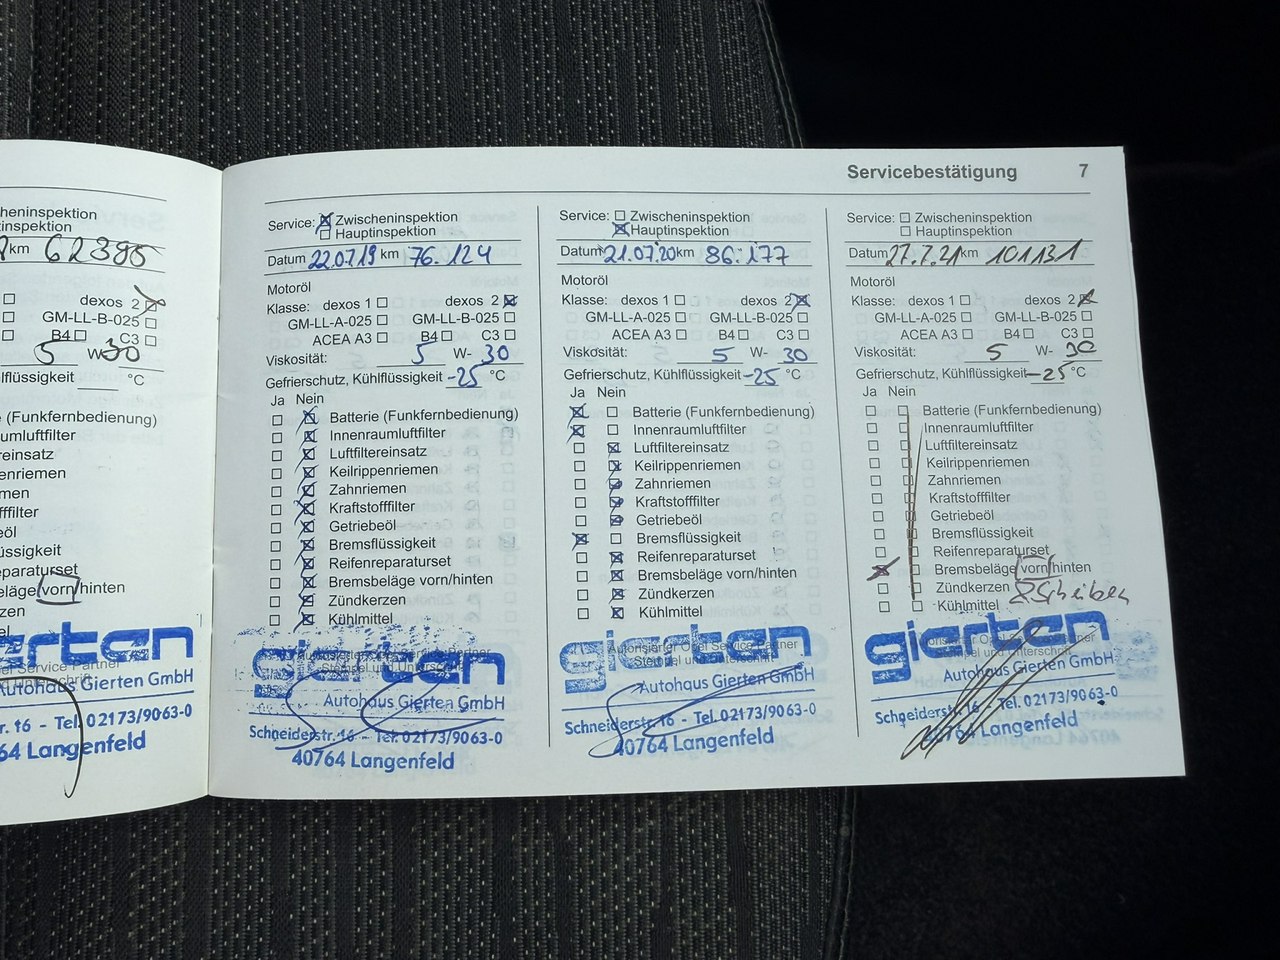 Servicebestätigung 7
heninspektion
inspektion
km 62386
dexos 2
GM-LL-B-025
B4 C3
5 W-30
lflüssigkeit °C
erie (Funkfernbedienung)
umluftfilter
ereinsatz
enriemen
men
fffilter
eöl
üssigkeit
eparaturset
eläge vorn/hinten
zen
el
Autohaus Gierten GmbH
r. 16 - Tel. 02173/9063-0
64 Langenfeld
Service: Zwischeninspektion
Hauptinspektion
Datum 22.07.19 km 76.124
Motoröl
Klasse: dexos 1 dexos 2
GM-LL-A-025 GM-LL-B-025
ACEA A3 B4 C3
Viskosität: 5 W- 30
Gefrierschutz, Kühlflüssigkeit -25 °C
Ja Nein
Batterie (Funkfernbedienung)
Innenraumluftfilter
Luftfiltereinsatz
Keilrippenriemen
Zahnriemen
Kraftstofffilter
Getriebeöl
Bremsflüssigkeit
Reifenreparaturset
Bremsbeläge vorn/hinten
Zündkerzen
Kühlmittel
gierten
Stempel und Unterschrift
Autohaus Gierten GmbH
Schneiderstr. 16 - Tel. 02173/9063-0
40764 Langenfeld
Service: Zwischeninspektion
Hauptinspektion
Datum 21.07.20 km 86.177
Motoröl
Klasse: dexos 1 dexos 2
GM-LL-A-025 GM-LL-B-025
ACEA A3 B4 C3
Viskosität: 5 W- 30
Gefrierschutz, Kühlflüssigkeit -25 °C
Ja Nein
Batterie (Funkfernbedienung)
Innenraumluftfilter
Luftfiltereinsatz
Keilrippenriemen
Zahnriemen
Kraftstofffilter
Getriebeöl
Bremsflüssigkeit
Reifenreparaturset
Bremsbeläge vorn/hinten
Zündkerzen
Kühlmittel
gierten
Autorisierter Opel Service Partner
Stempel und Unterschrift
Autohaus Gierten GmbH
Schneiderstr. 16 - Tel. 02173/9063-0
40764 Langenfeld
Service: Zwischeninspektion
Hauptinspektion
Datum 27.7.21 km 101131
Motoröl
Klasse: dexos 1 dexos 2
GM-LL-A-025 GM-LL-B-025
ACEA A3 B4 C3
Viskosität: 5 W- 30
Gefrierschutz, Kühlflüssigkeit -25 °C
Ja Nein
Batterie (Funkfernbedienung)
Innenraumluftfilter
Luftfiltereinsatz
Keilrippenriemen
Zahnriemen
Kraftstofffilter
Getriebeöl
Bremsflüssigkeit
Reifenreparaturset
Bremsbeläge vorn/hinten
Zündkerzen Scheiben
Kühlmittel
gierten
Stempel und Unterschrift
Autohaus Gierten GmbH
Schneiderstr. 16 - Tel. 02173/9063-0
40764 Langenfeld